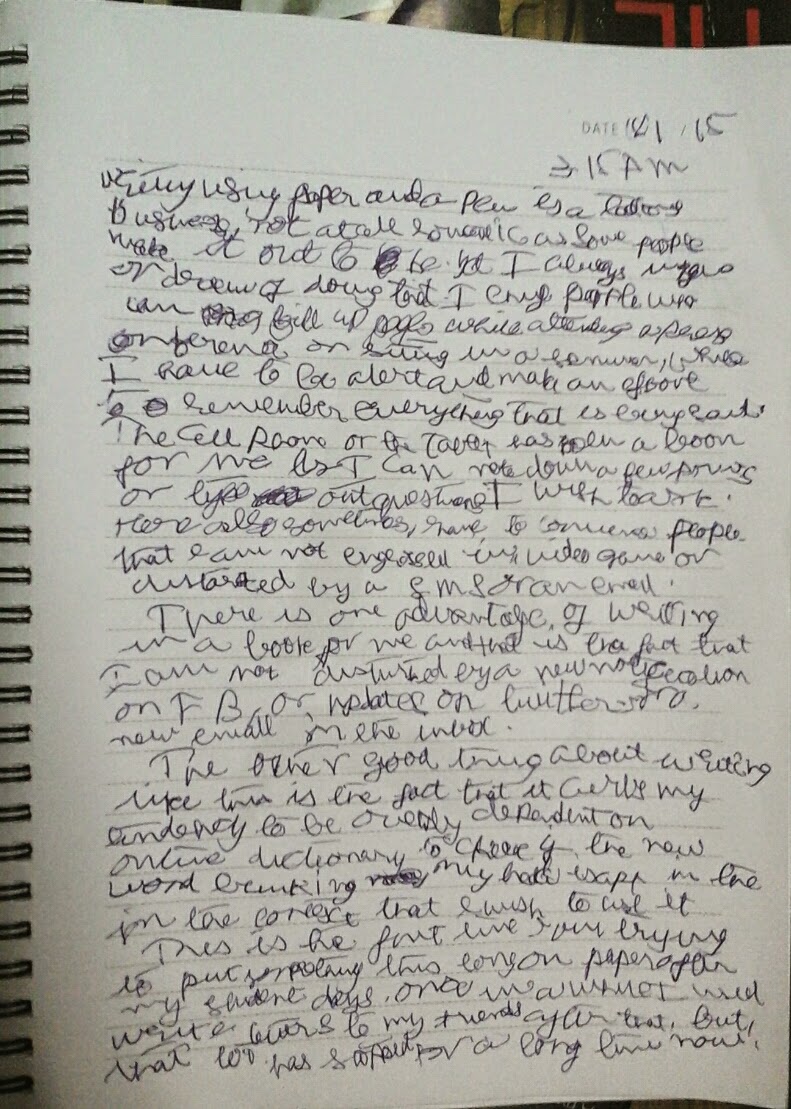 DATE 18/1/15
3 15 AM
using paper and a pen is a tedious
business, not at all romantic as some people
make it out to be but I always
or dream of doing that. I envy people who
can fill up pages while attending a press
conference or sitting in a seminar, where
I have to be alert and make an
to remember everything that is being said.
The Cell Phone or the Tablet has been a boon
for me as I can note down a few points
or type out questions I wish to ask.
Here also sometimes, have to convince people
that I am not engrossed in video game or
distracted by a SMS or an email.
There is one advantage, of writing
in a book for me and that is the fact that
I am not disturbed by a new notification
on F B, or updates on twitter or a
new email in the inbox.
The other good thing about writing
like this is the fact that it curbs my
tendency to be overly dependent on
online dictionary to check if the new
word my is app in the
in the context that I wish to use it
This is the first time I am trying
to put something this long on paper after
my student days. once in a while I used
write letters to my friends after that, but,
that too has stopped for a long time now.